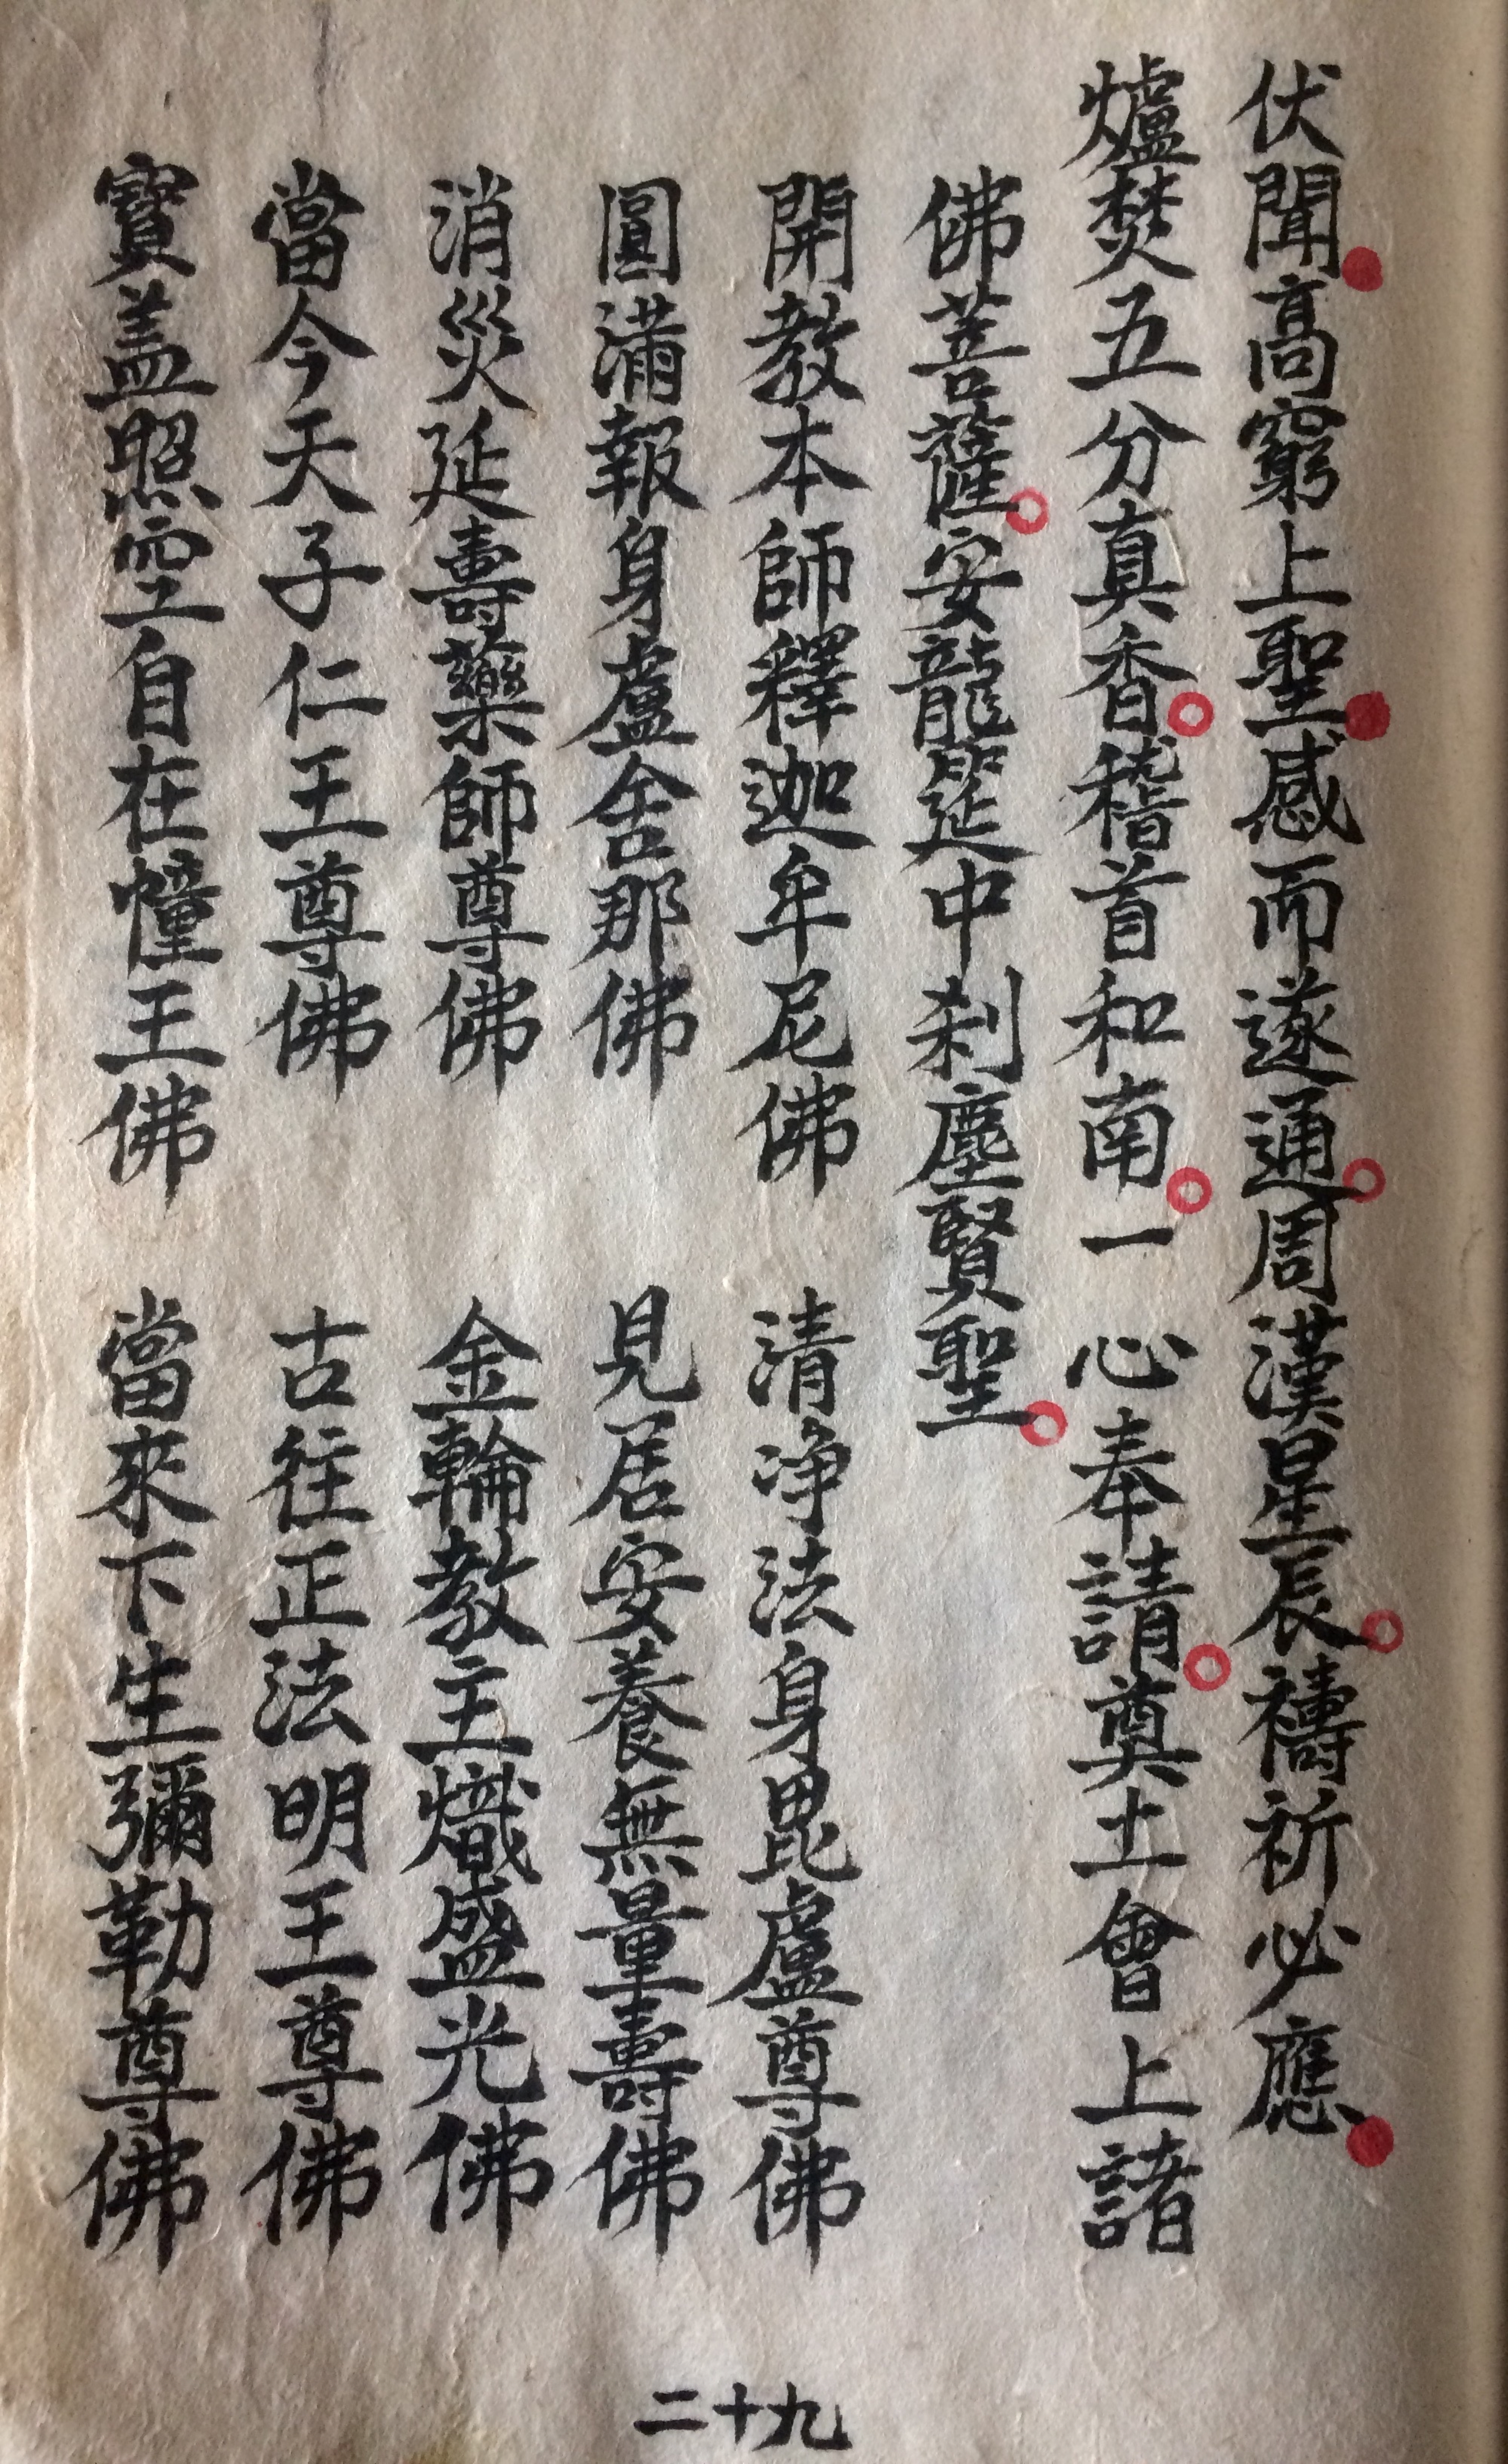 伏聞高窮上聖感而遂通周漢星辰禱祈必應
爐焚五分真香稽首和南一心奉請奠土會上諸
佛菩薩安龍筵中刹塵賢聖
開教本師釋迦牟尼佛 清淨法身毘盧尊佛
圓滿報身盧舍那佛 見居安養無量壽佛
消災延壽藥師尊佛 金輪教主熾盛光佛
當今天子仁王尊佛 古往正法明王尊佛
寶盖照空自在幢王佛 當來下生彌勒尊佛
二十九